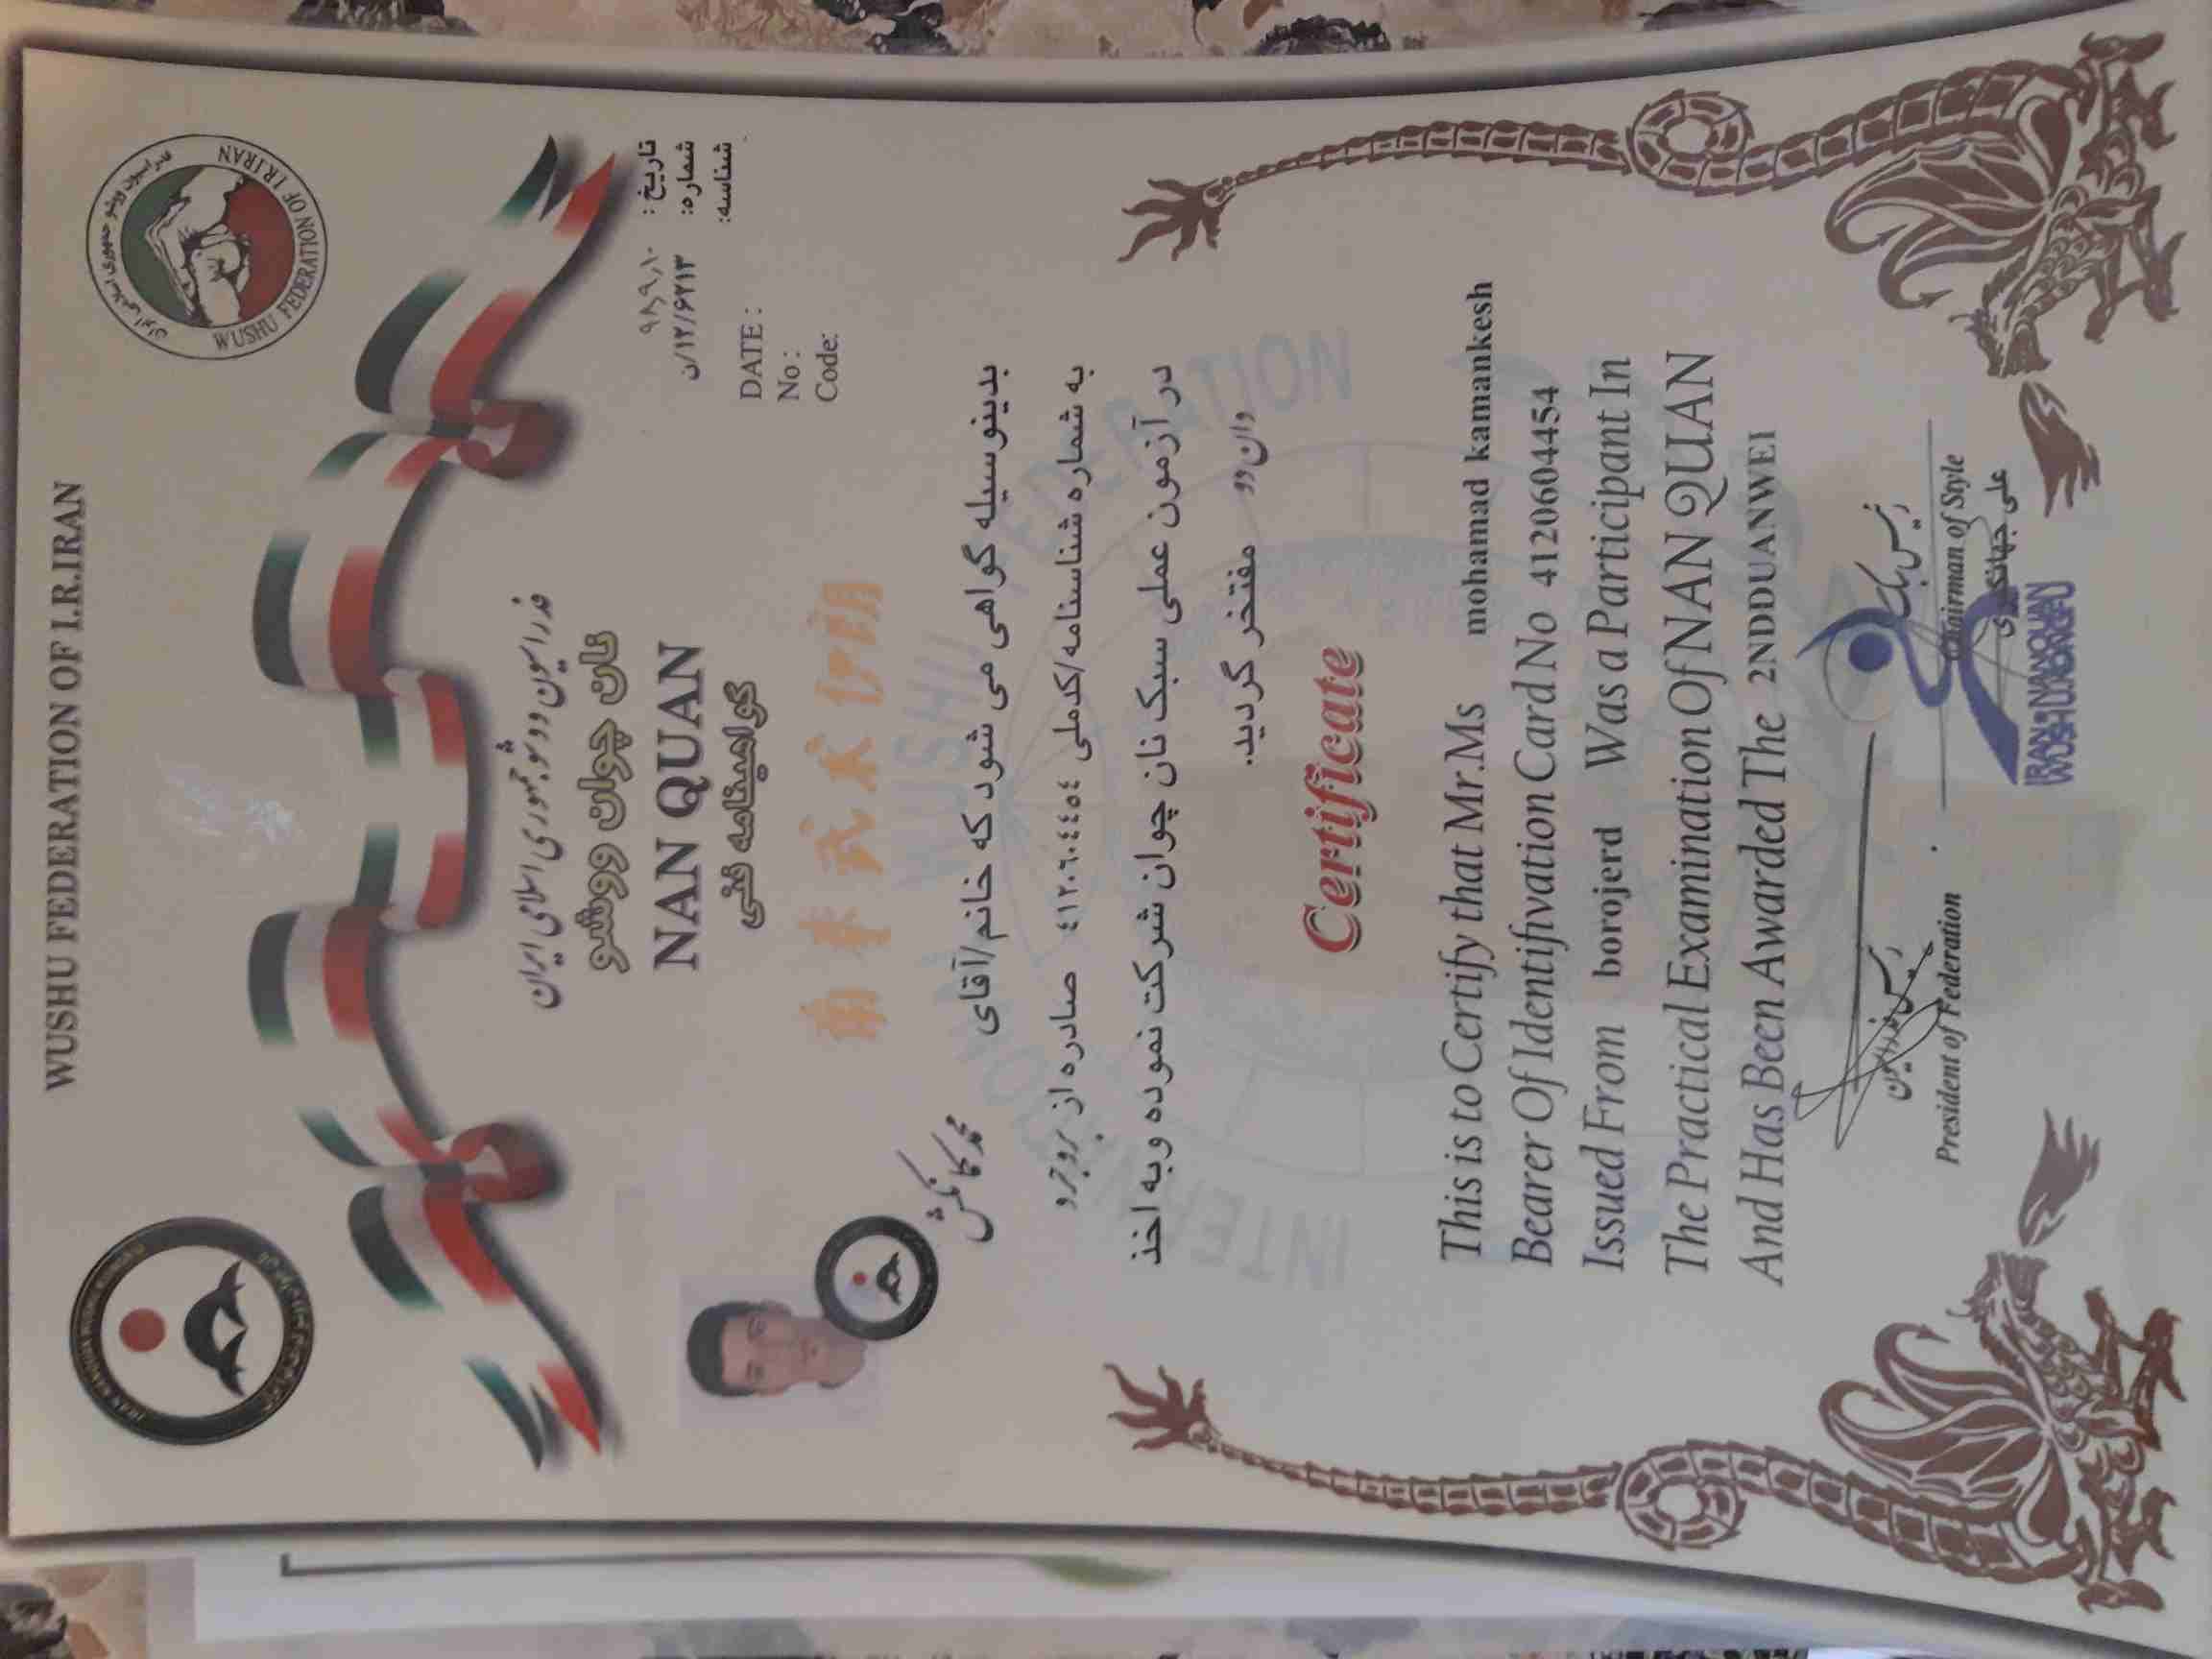 WUSHU FEDERATION OF I.R.IRAN
فدراسیون ووشو جمهوری اسلامی ایران
WUSHU FEDERATION OF I.R.IRAN
فدراسیون ووشو جمهوری اسلامی ایران
نان چوان ووشو
NAN QUAN
گواهینامه فنی
تاریخ : ۹۸٫۹٫۱۰
شماره: ۱۲/۶۲۱۳/ن
شناسه:
DATE :
No :
Code:
南拳武术伊朗
بدینوسیله گواهی می شود که خانم/آقای محمد کمانکش
به شماره شناسنامه/کدملی ٤١٢٠٦٠٤٤٥٤ صادره از بروجرد
در آزمون عملی سبک نان چوان شرکت نموده و به اخذ
دان دو مفتخر گردید.
Certificate
This is to Certify that Mr.Ms mohamad kamankesh
Bearer Of Identifivation Card No 4120604454
Issued From borojerd Was a Participant In
The Practical Examination Of NAN QUAN
And Has Been Awarded The 2NDDUANWEI
رئیس فدراسیون
President of Federation
رئیس سبک
Chairman of Style
علی جهانگیری
IRAN NANQUAN
INTERNATIONAL WUSHU FEDERATION